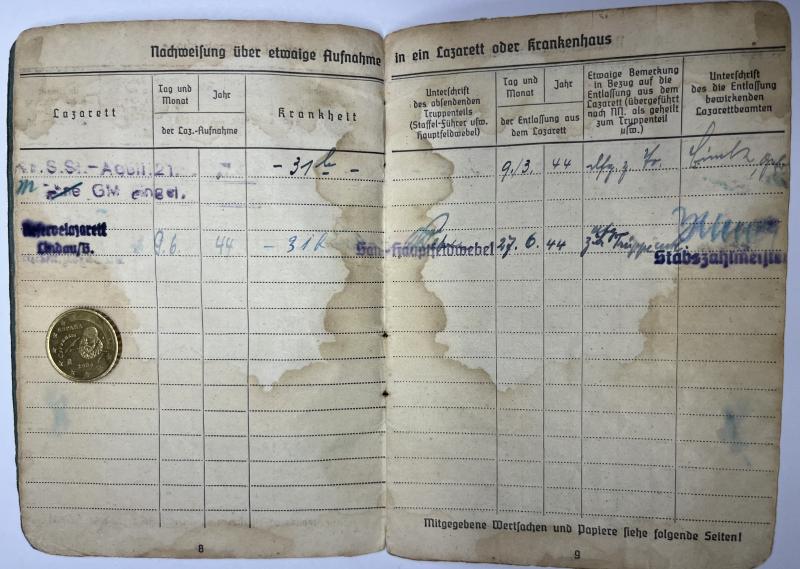 Nachweisung über etwaige Aufnahme in ein Lazarett oder Krankenhaus
Lazarett
Tag und Monat
Jahr
der Laz.-Aufnahme
Krankheit
Unterschrift
des absendenden
Truppenteils
(Staffel-Führer usw.
Hauptfeldwebel)
Tag und Monat
Jahr
der Entlassung aus
dem Lazarett
Etwaige Bemerkung
in Bezug auf die
Entlassung aus dem
Lazarett (übergeführt
nach NN. als geheilt
zum Truppenteil
usw.)
Unterschrift
des die Entlassung
bewirkenden
Lazarettbeamten
21.
- 31b -
9./3. 44
GM
Reservelazarett
Lindau/B.
9.6. 44
- 31b
Hauptfeldwebel
27. 6. 44
Stabszahlmeister
ESPAÑA
Mitgegebene Wertsachen und Papiere siehe folgende Seiten!
8
9